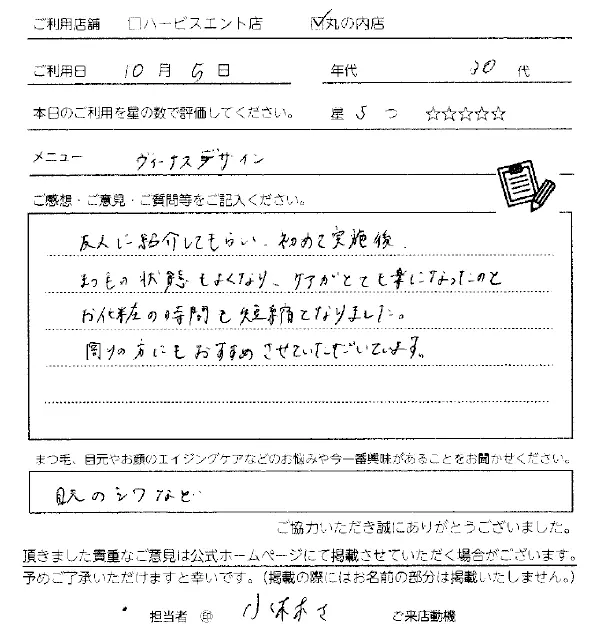 ご利用店舗 □ハービスエント店 ☑丸の内店
ご利用日 10 月 5 日 年代 30 代
本日のご利用を星の数で評価してください。 星 5 つ ☆☆☆☆☆
メニュー ヴィーナスデザイン
ご感想・ご意見・ご質問等をご記入ください。
友人に紹介してもらい、初めて実施後、
まつもの状態もよくなり、ケアがとても楽になったのと
お化粧の時間も短縮になりました。
周りの方にもおすすめさせていただいています。
まつ毛、目元やお顔のエイジングケアなどのお悩みや今一番興味があることをお聞かせください。
目元のシワなど
ご協力いただき誠にありがとうございました。
頂きました貴重なご意見は公式ホームページにて掲載させていただく場合がございます。
予めご了承いただけますと幸いです。(掲載の際にはお名前の部分は掲載いたしません。)
担当者 ㊞ ご来店動機